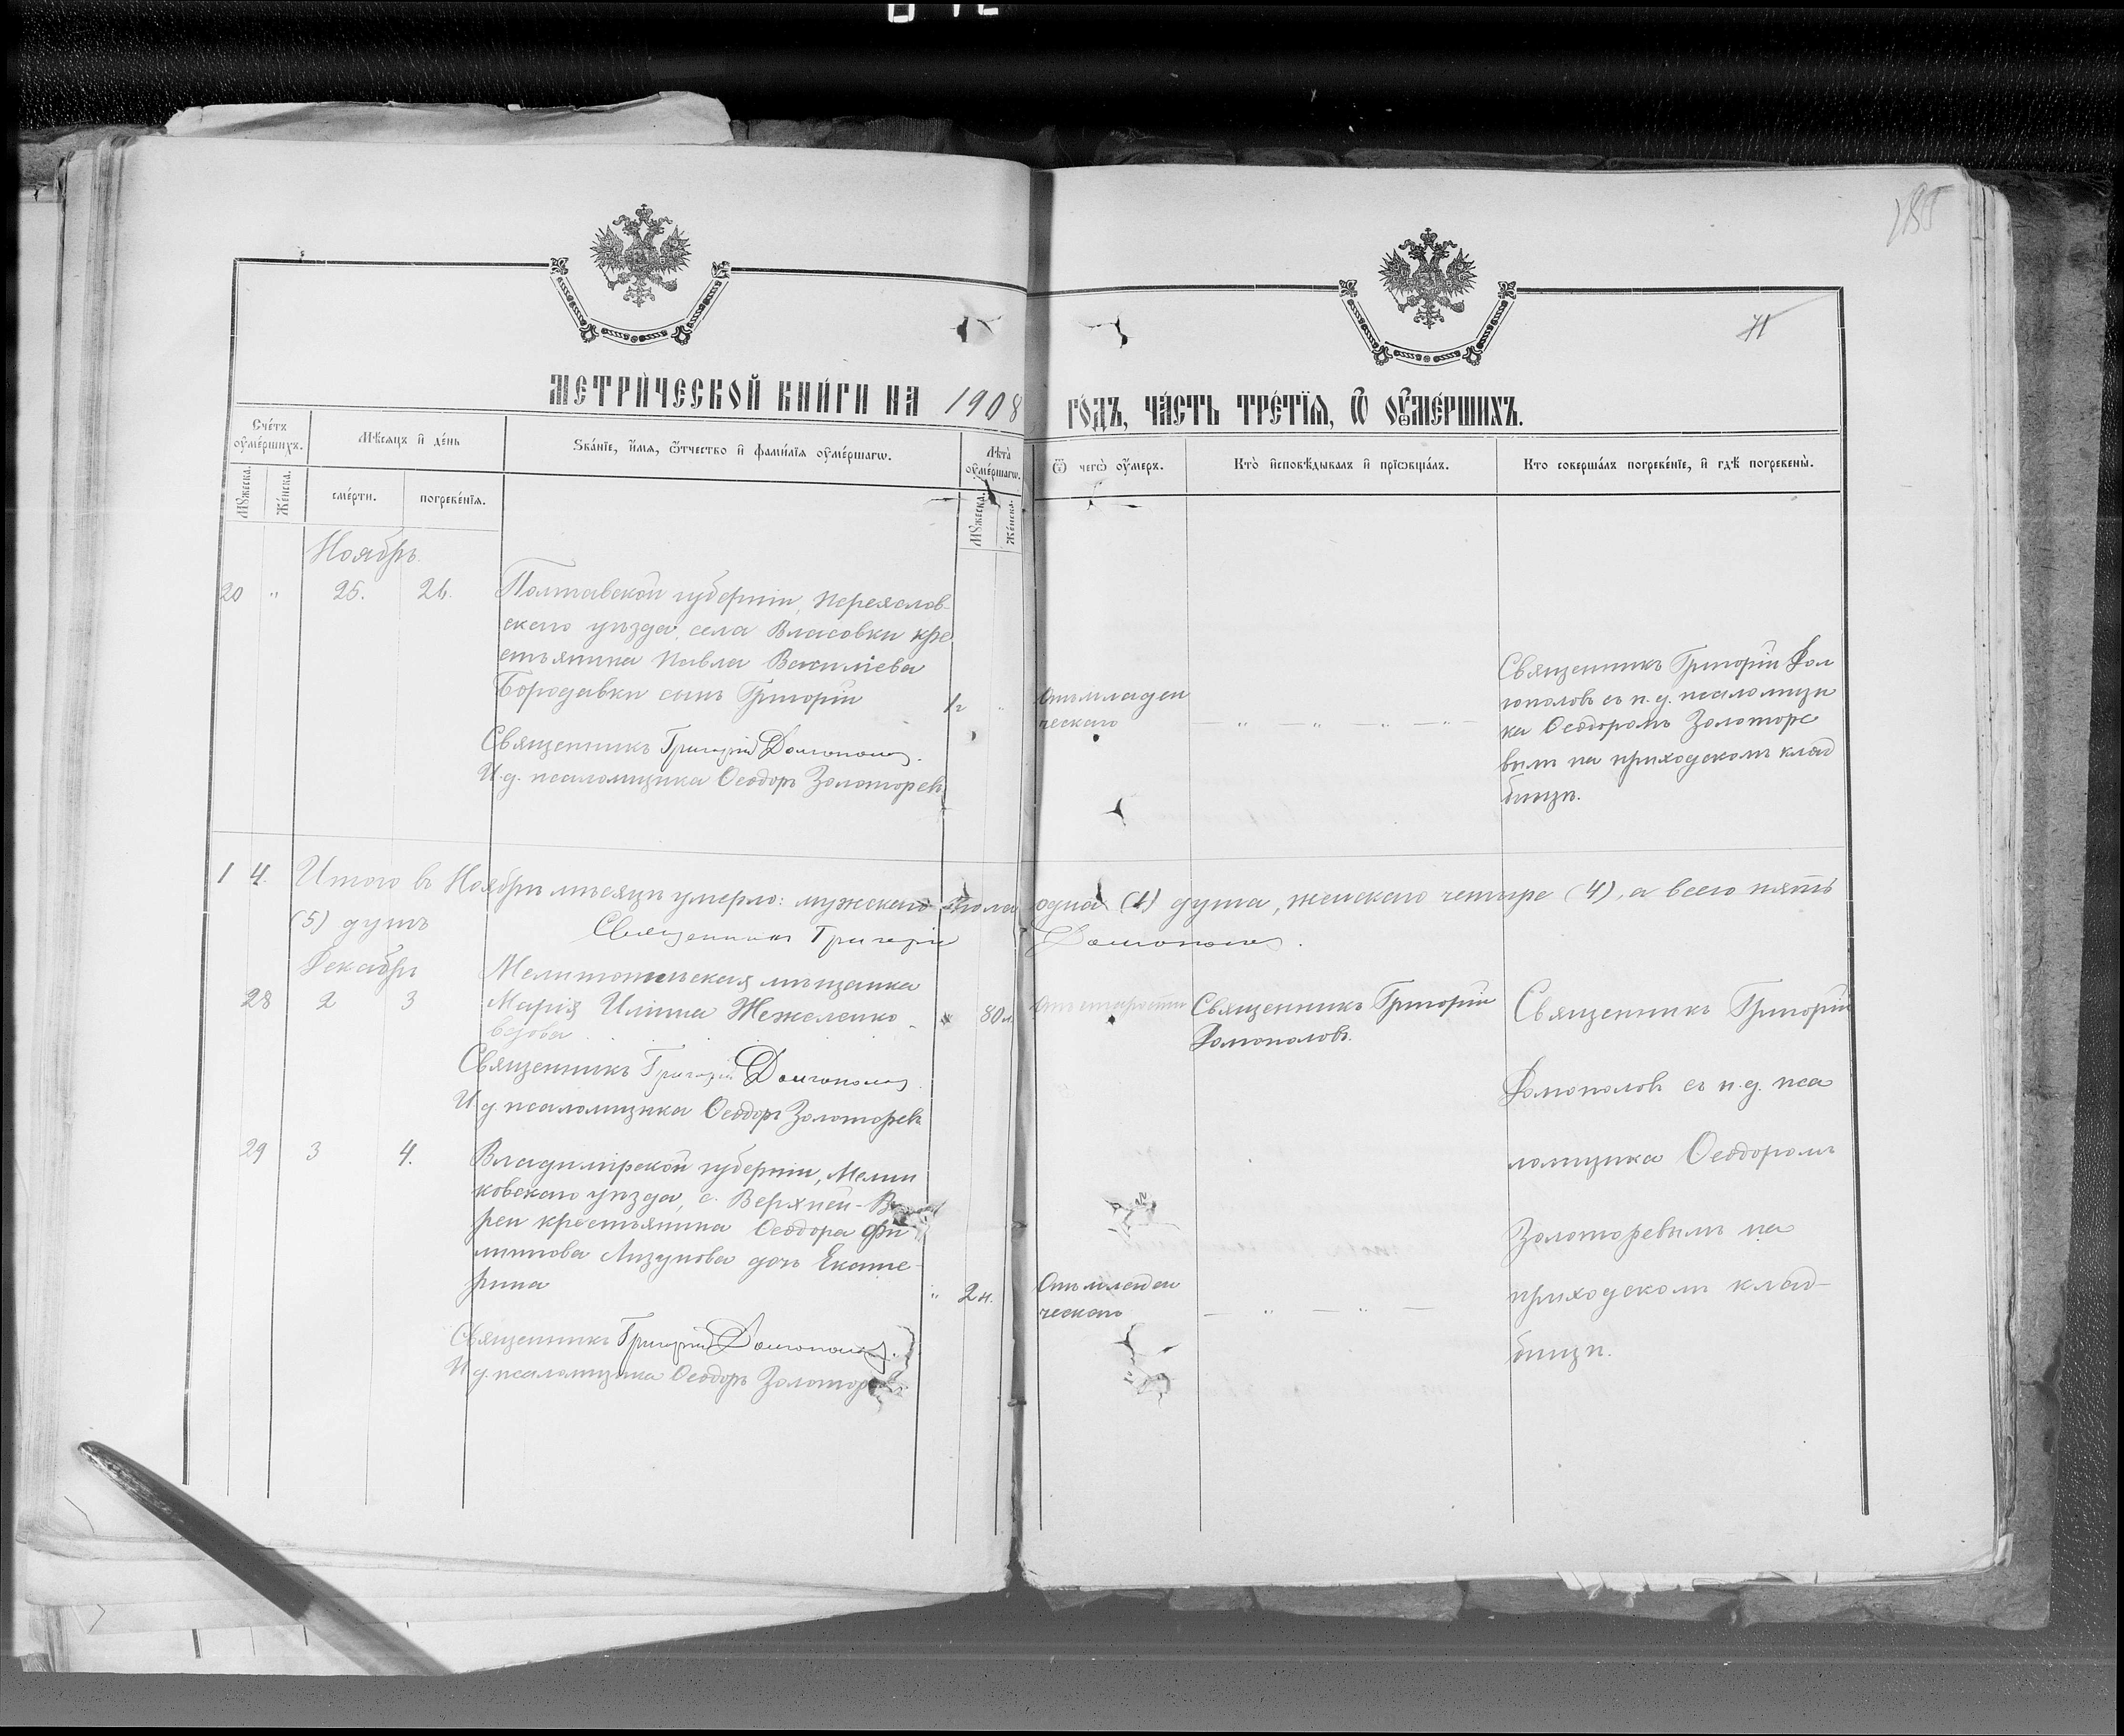 185
71
МЕТРИ́ЧЕСКОЙ КНИ́ГИ НА 1908 ГО́ДЪ, ЧА́СТЬ ТРЕ́ТЇѦ, Ѿ ОУ҆МЕ́РШИХЪ.
Сче́тъ оу҆ме́ршихъ.
Мѣ́сѧцъ и҆ де́нь
Зва́нїе, и҆́мѧ, ѻ҆́тчество и҆ фами́лїѧ оу҆ме́ршагѡ.
Лѣ́та оу҆ме́ршагѡ.
Ѿ чегѡ̀ оу҆́меръ.
Кто̀ и҆сповѣ́дывалъ и҆ прїѡбща́лъ.
Кто соверша́лъ погребе́нїе, и҆ гдѣ̀ погребены̀.
Мꙋ́жеска.
Же́нска.
сме́рти.
погребе́нїѧ.
Мꙋ́жеска.
Же́нска.
Ноябрь.
20 " 25. 26.
Полтавской губерніи, Переяслов-
скаго уѣзда, села Власовки кре
стьянина Павла Васильева
Бородавки сынъ Григорій
Священникъ Григорій Долгополов.
И. д. псаломщика Ѳеодоръ Золоторевъ
"
Отъ младен
ческаго
— " — " — " — " —
Священникъ Григорій Дол
гополовъ съ и. д. псаломщи
ка Ѳеодоромъ Золоторе
вымъ на приходскомъ клад
бищѣ.
1 4. Итого въ Ноябрѣ мѣсяцѣ умерло: мужескаго пола одна (1) душа, женскаго четыре (4), а всего пять
(5) душъ
Священникъ Григорій Долгополов.
Декабрь
28 2 3
Мелитопольская мѣщанка
Марія Ильина Жежеленко-
Священникъ Григорій Долгополов.
И. д. псаломщика Ѳеодоръ Золоторевъ
80 л.
Отъ старости
Священникъ Григорій
Долгополовъ.
Священникъ Григорій
Долгополовъ съ и. д. пса
ломщика Ѳеодоромъ
Золоторевымъ на
приходскомъ клад-
бищѣ.
29 3 4.
Владимірской губерніи, Мелен
ковскаго уѣзда, с. Верхней-
реи крестьянина Ѳеодора Фи
липпова Лизунова дочь Екате-
рина
" 2 н.
Отъ младен
ческаго
— " — " —
Священникъ Григорій Долгополов.
И. д. псаломщика Ѳеодоръ Золоторевъ